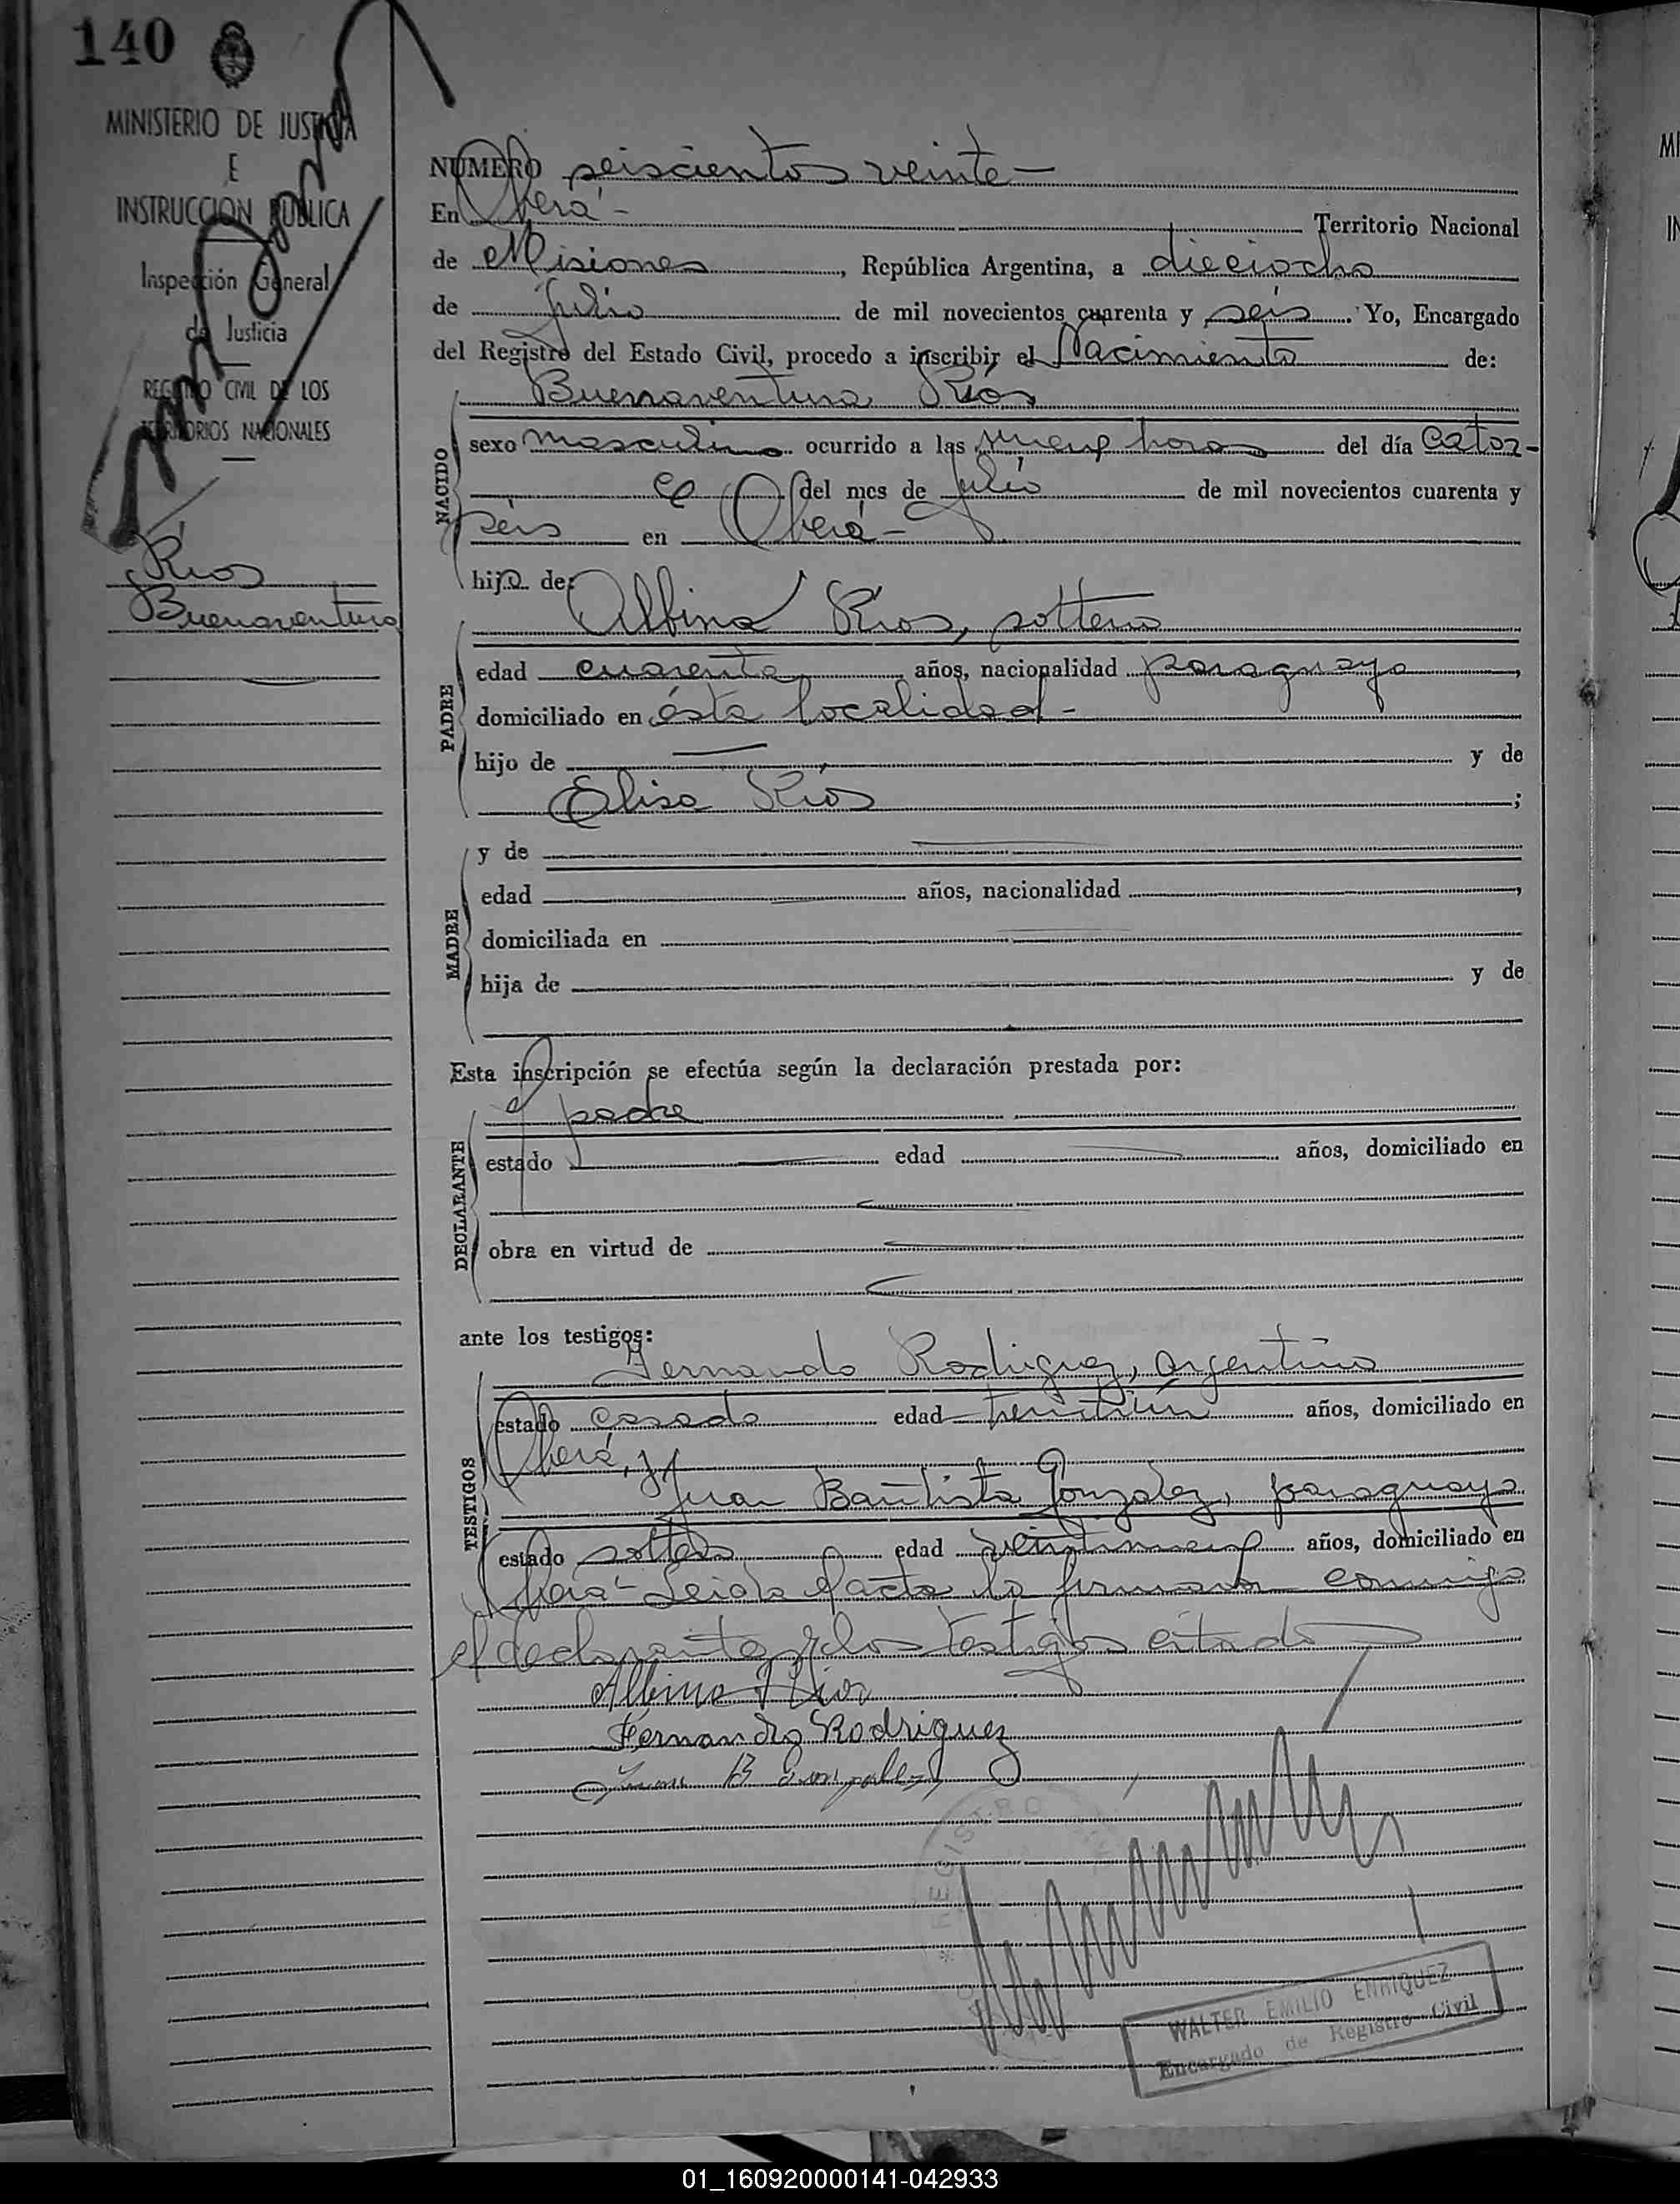 140
MINISTERIO DE JUSTICIA
E
INSTRUCCION PUBLICA
Inspección General
de Justicia
REGISTRO CIVIL DE LOS
TERRITORIOS NACIONALES
Rios
Buenaventura
NUMERO seiscientos veinte
En Oberá Territorio Nacional
de Misiones, República Argentina, a dieciocho
de julio de mil novecientos cuarenta y seis. Yo, Encargado
del Registro del Estado Civil, procedo a inscribir el Nacimiento de:
Buenaventura Rios
NACIDO
sexo masculino ocurrido a las nueve horas del día cator-
ce del mes de julio de mil novecientos cuarenta y
seis en Oberá
hijo de:
PADRE
Albino Rios, soltero
edad cuarenta años, nacionalidad paraguayo,
domiciliado en ésta localidad
hijo de y de
Elisa Rios ;
MADRE
y de
edad años, nacionalidad ,
domiciliada en
hija de y de
Esta inscripción se efectúa según la declaración prestada por:
DECLARANTE
el padre
estado edad años, domiciliado en
obra en virtud de
ante los testigos:
TESTIGOS
Fernando Rodriguez, argentino
estado casado edad treintiun años, domiciliado en
Oberá, y
Juan Bautista Gonzalez, paraguayo
estado soltero edad veintinueve años, domiciliado en
Oberá - Leida el acta la firmaron conmigo
el declarante y los testigos citados
Albino Rios
Fernando Rodriguez
Juan B Gonzalez
REGISTRO
WALTER EMILIO ENRIQUEZ
Encargado de Registro Civil
01_160920000141-042933